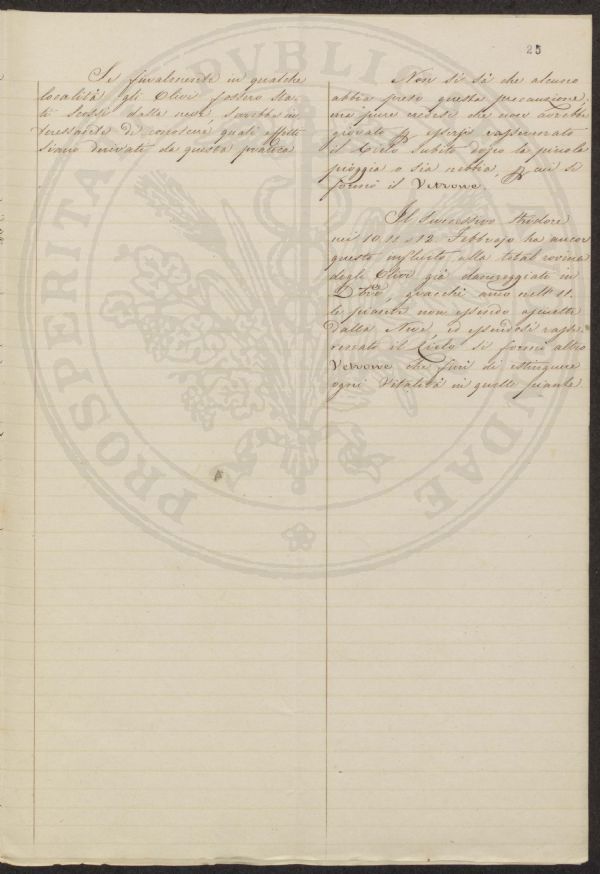 25
Se finalmente in qualche
località gli Olivi fossero sta-
ti scossi dalla neve, sarebbe in
teressante di conoscere quali effetti
siano derivati da questa pratica
Non si sà che alcuno
abbia preso questa precauzione,
ma pure credesi che non avrebbe
giovato p essersi rasserenato
il Cielo subito dopo la piccola
pioggia o sia nebbia, p cui si
formò il Vetrone.
Il successivo Stridore
nei 10, 11 e 12 Febbrajo ha ancor
questo influito alla total rovina
degli Olivi già danneggiati in
Dbre, giacchè anco nell' 11.
le piante non essendo asciutte
dalla Neve, ed essendosi rasse-
renato il Cielo si formò altro
Vetrone che finì di estinguere
ogni Vitalità in quelle piante
PROSPERITA PVBLIC UDAE